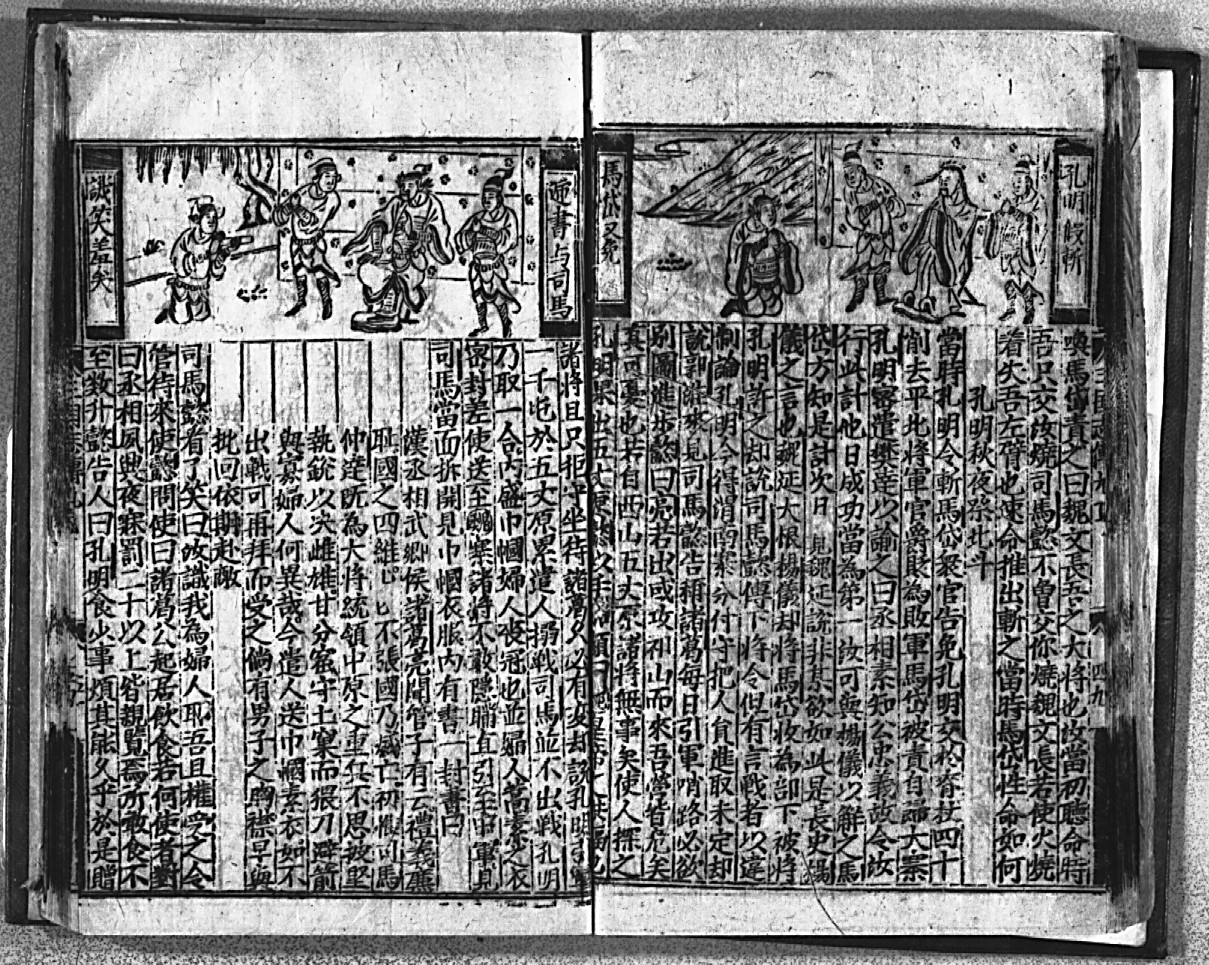 孔明假斬
馬岱又免
喚馬岱責之曰魏文長吾之大將也汝當初聽命時
吾只交汝燒司馬懿不曽父你燒魏文長若使火燒
着失吾左臂也速命推出斬之當時馬岱性命如何
孔明秋夜祭北斗
當時孔明令斬馬岱衆官告免孔明交於脊杖四十
削去平北將軍官爵貶為散軍馬岱被責自歸大寨
孔明密遣樊達以諭之曰丞相素知公忠義故令汝
行此計他日成功當為第一汝可與楊儀以解之馬
岱方知是計次日見魏延說非某欲如此是長史楊
儀之言也魏延大恨楊儀却將馬岱收為部下被將
孔明許之却說司馬懿傳下將令但有言戰者以違
制論孔明令得渭南寨分付守把人員進取未定却
說郭淮來見司馬懿告稱諸葛每日引軍哨路必欲
別圖進步懿曰亮若出或攻祁山而來吾營皆危矣
真可憂也若自西山五丈原諸將無事矣使人探之
孔明果出五丈原
遞書与司馬
譏笑羞矣
諸將且只拒守坐待諸葛久必有変却說孔明引軍
一千屯於五丈原累遣人搦戰司馬並不出戰孔明
乃取一合內盛巾幗婦人喪冠也並婦人縞素之衣
密封差使送至魏寨諸將不敢隱瞞直引至中軍見
司馬當面拆開見巾幗衣服內有書一封書曰
漢丞相武鄉侯諸葛亮聞管子有云禮義廉
恥國之四維匕不張國乃滅亡初惟司馬
仲達旣為大將統領中原之重任不思披堅
執銳以决雌雄甘分窟守土窠而猥刀避箭
與寡婦人何異哉今遣人送巾幗素衣如不
出戰可再拜而受之倘有男子之胸襟早與
批回依期赴敵
司馬懿看了笑曰故譏我為婦人耶吾且權受之令
管待來使懿問使曰諸葛公起居飲食若何使者對
曰丞相夙興夜寐罰二十以上皆親覽焉所敢食不
至數升懿告人曰孔明食少事煩其能久乎於是贈